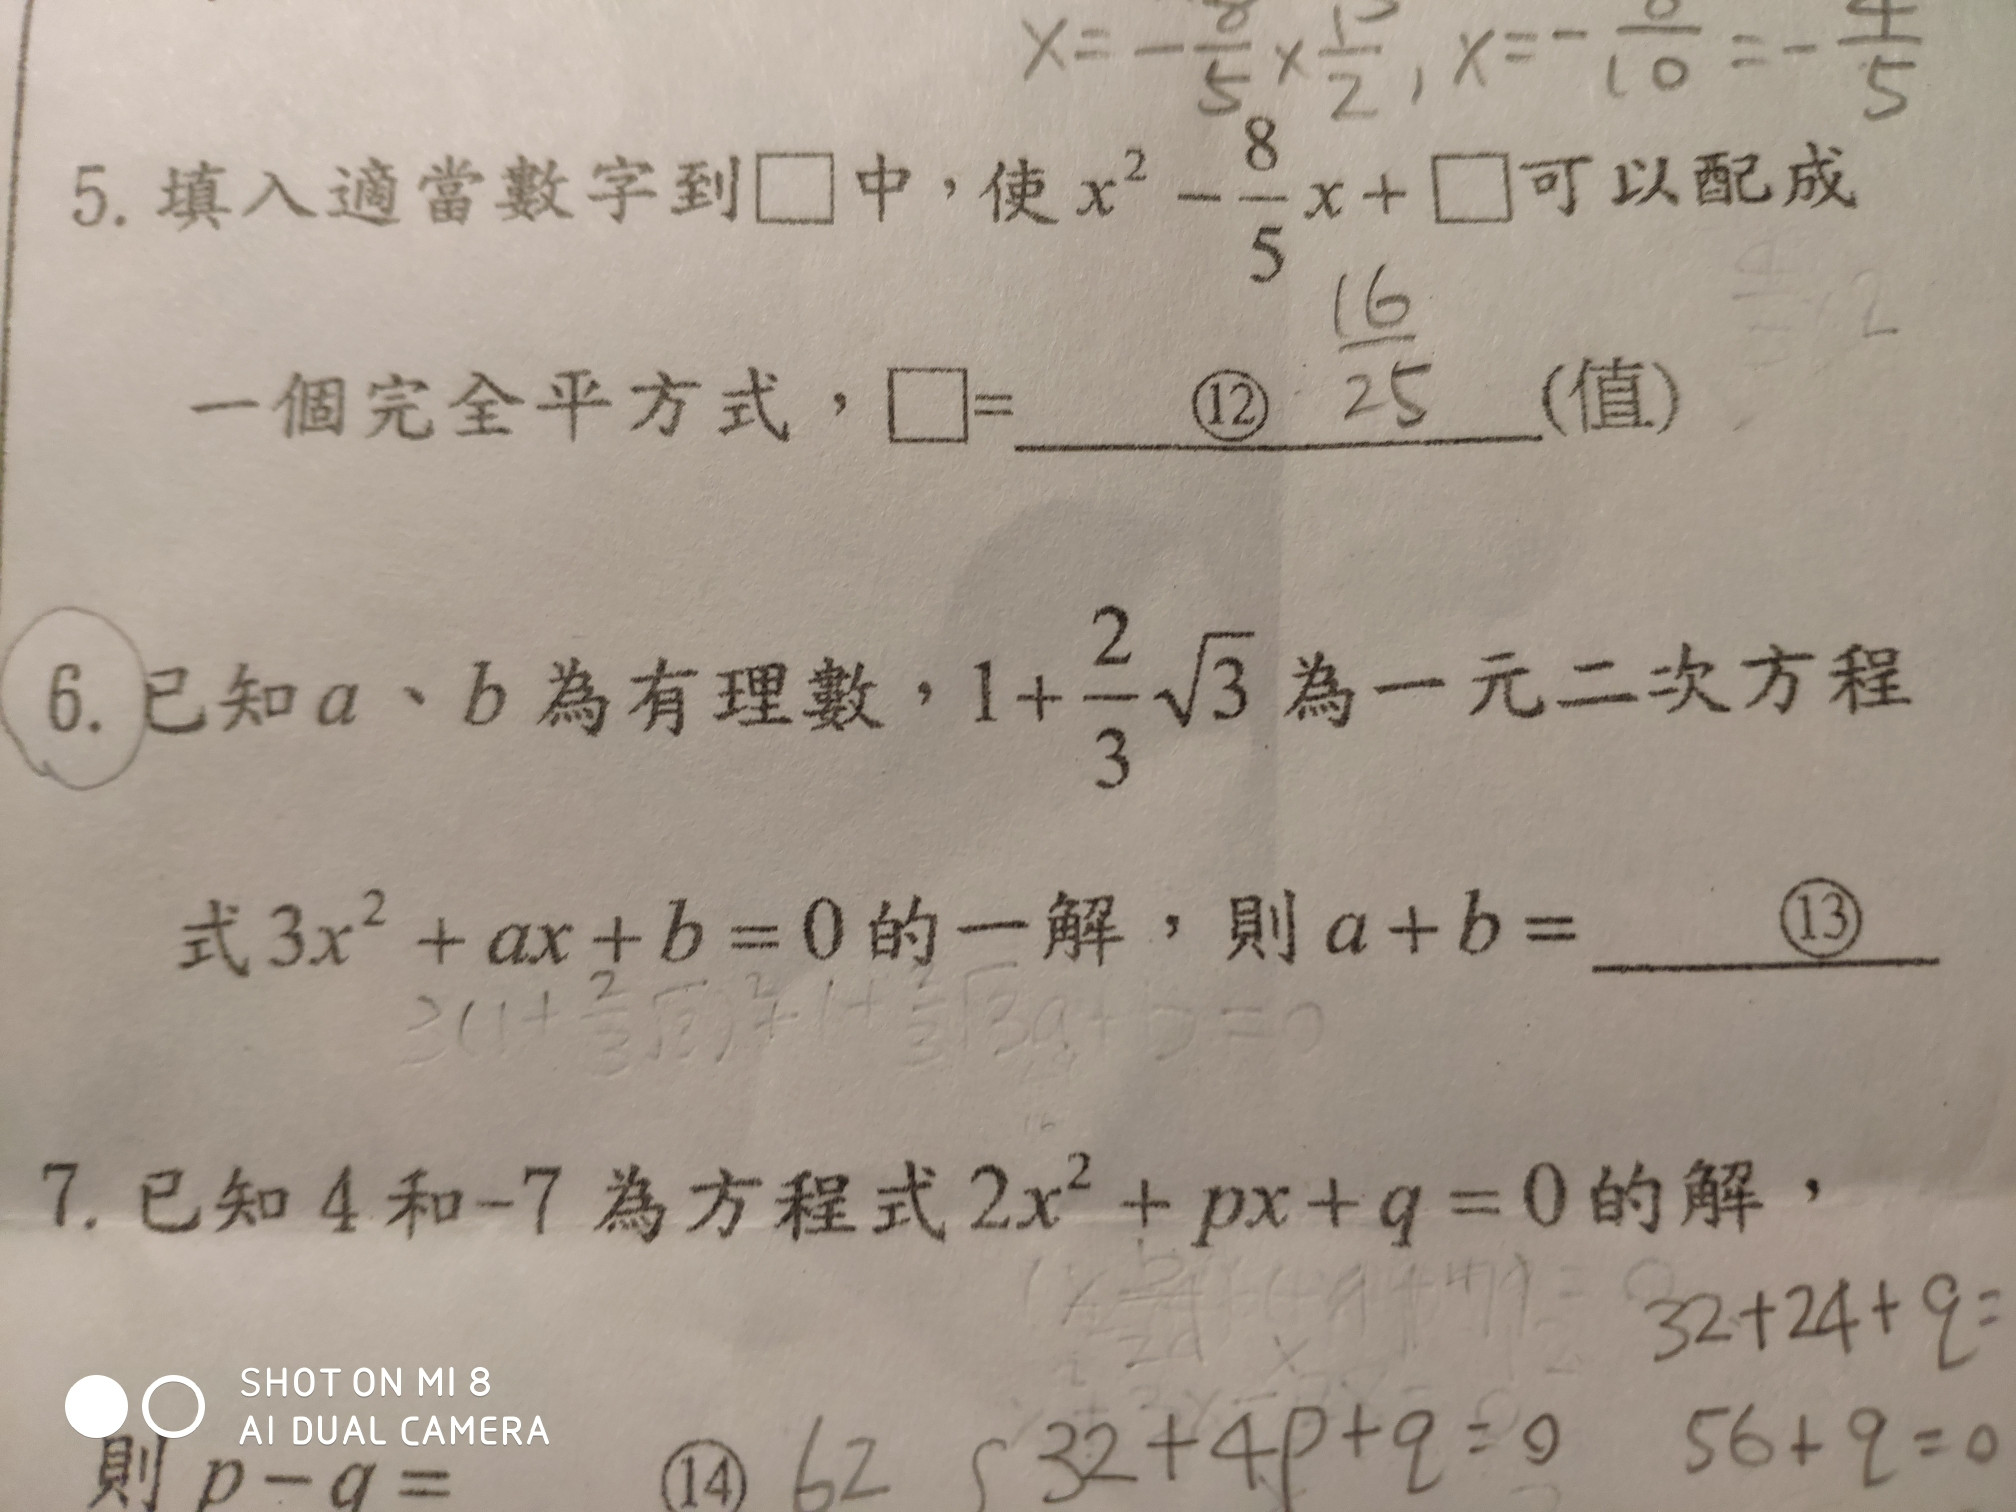 x = - 8/5 × 1/2 , x = - 8/10 = - 4/5
5. 填入適當數字到□中，使 x² - 8/5 x + □可以配成
一個完全平方式，□= ⑫ 16/25 (值)
6. 已知 a、b 為有理數，1 + 2/3 √3 為一元二次方程
式 3x² + ax + b = 0 的一解，則 a + b = ⑬
3(1+2/3√3)²+1+2/3√3a+b=0
7. 已知 4 和-7 為方程式 2x² + px + q = 0 的解，
32+24+q=
SHOT ON MI 8
AI DUAL CAMERA
則 p - q = ⑭ 62 32+4p+q=0 56+q=0